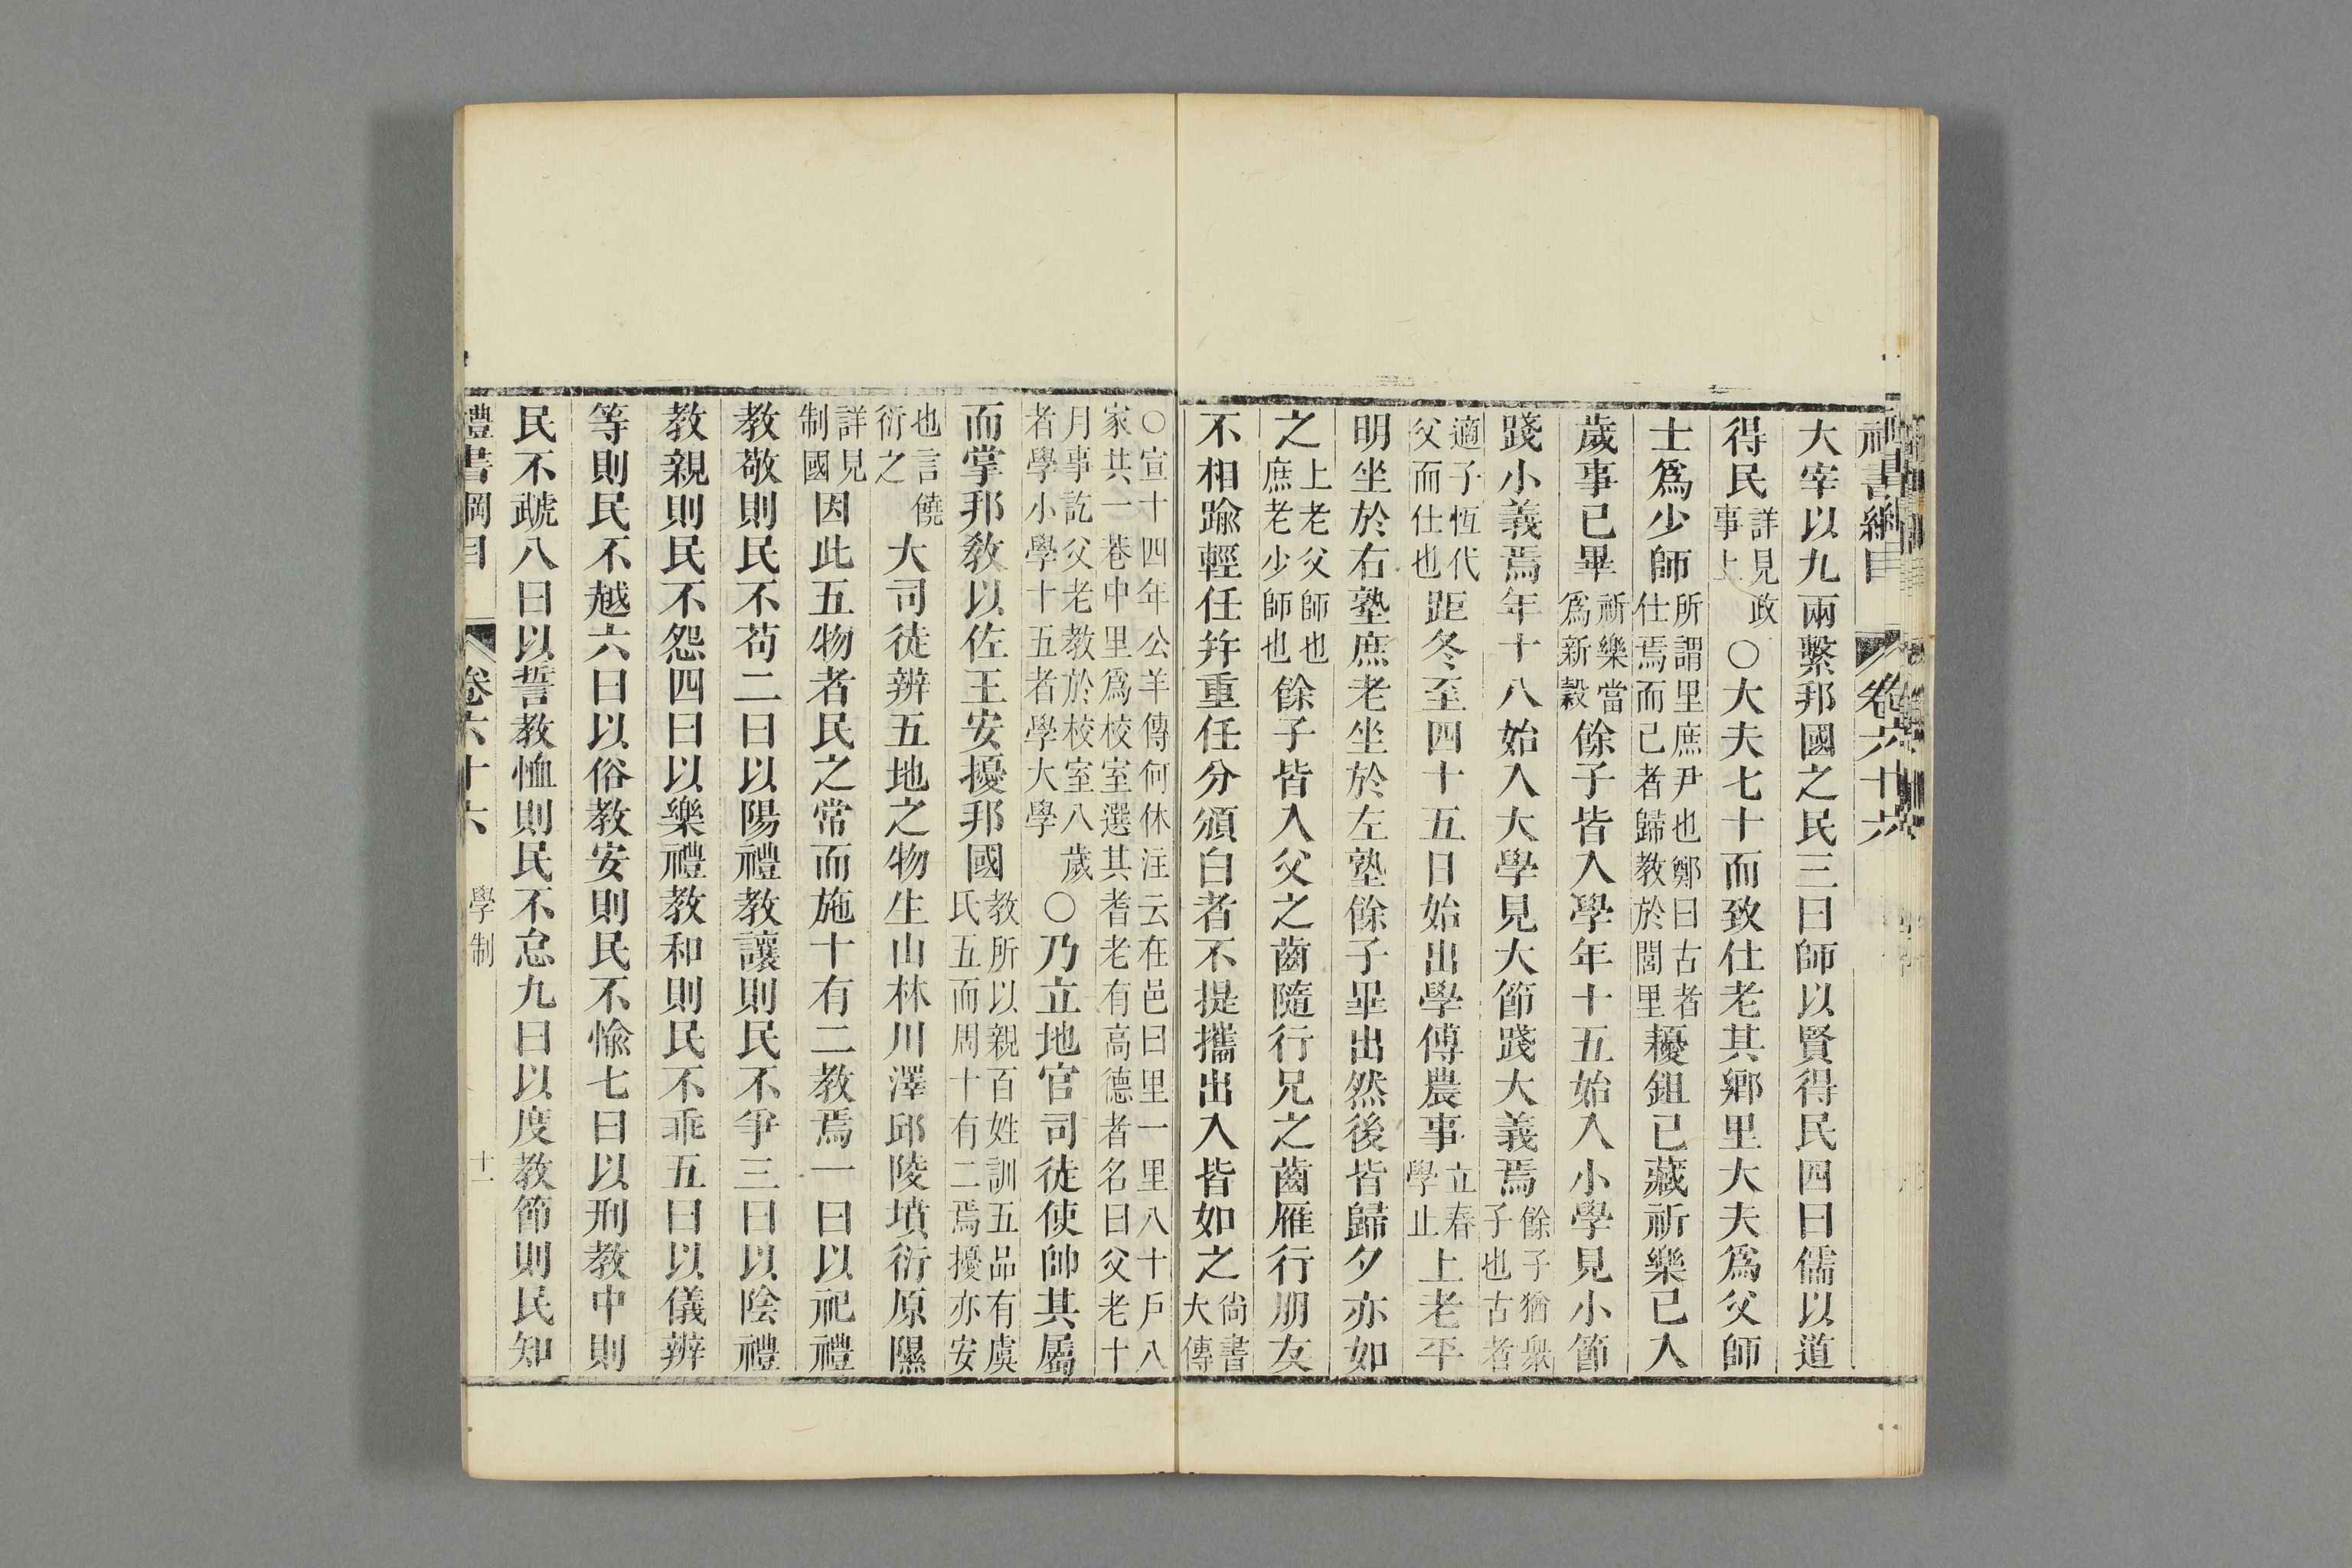 禮書綱目 卷六十六
大宰以九兩繫邦國之民三曰師以賢得民四曰儒以道
得民詳見政事上○大夫七十而致仕老其鄉里大夫爲父師
士爲少師所謂里庶尹也鄭曰古者仕焉而已者歸教於閭里耰鉏已藏祈樂已入
歲事已畢祈樂當爲新穀餘子皆入學年十五始入小學見小節
踐小義焉年十八始入大學見大節踐大義焉餘子猶衆子也古者
適子恆代父而仕也距冬至四十五日始出學傅農事立春學止上老平
明坐於右塾庶老坐於左塾餘子畢出然後皆歸夕亦如
之上老父師也庶老少師也餘子皆入父之齒隨行兄之齒雁行朋友
不相踰輕任幷重任分頒白者不提攜出入皆如之尚書大傳
○宣十四年公羊傳何休注云在邑曰里一里八十戶八家共一巷中里爲校室選其耆老有高德者名曰父老十
月事訖父老教於校室八歲者學小學十五者學大學○乃立地官司徒使帥其屬
而掌邦教以佐王安擾邦國教所以親百姓訓五品有虞氏五而周十有二焉擾亦安
也言饒衍之大司徒辨五地之物生山林川澤邱陵墳衍原隰
詳見制國因此五物者民之常而施十有二教焉一曰以祀禮
教敬則民不苟二曰以陽禮教讓則民不爭三曰以陰禮
教親則民不怨四曰以樂禮教和則民不乖五曰以儀辨
等則民不越六曰以俗教安則民不愉七曰以刑教中則
民不虣八曰以誓教恤則民不怠九曰以度教節則民知
禮書綱目 卷六十六 學制 十一